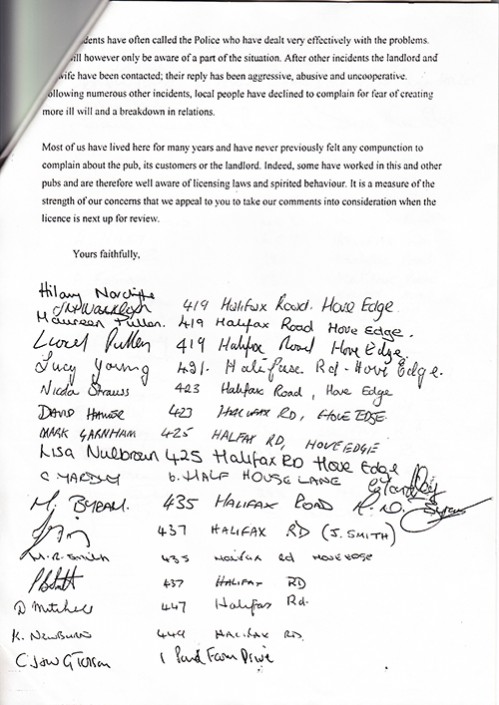 dents have often called the Police who have dealt very effectively with the problems.
ill however only be aware of a part of the situation. After other incidents the landlord and
wife have been contacted; their reply has been aggressive, abusive and uncooperative.
ollowing numerous other incidents, local people have declined to complain for fear of creating
more ill will and a breakdown in relations.
Most of us have lived here for many years and have never previously felt any compunction to
complain about the pub, its customers or the landlord. Indeed, some have worked in this and other
pubs and are therefore well aware of licensing laws and spirited behaviour. It is a measure of the
strength of our concerns that we appeal to you to take our comments into consideration when the
licence is next up for review.
Yours faithfully,
Hilary
419 Halifax Road. Hove Edge
Maureen Pullen. 419 Halifax Road Hove Edge.
Pullen 419 Halifax Road Hove Edge.
Lucy Young Rd - Hove Edge.
Nicola Strauss 423 Halifax Road, Hove Edge
DAVID 423 HALIFAX RD, HOVE EDGE.
MARK GARNHAM 425 HALFAX RD, HOVE EDGE
Lisa 425 Halifax RD Hove Edge
C 6. HALF HOUSE LANE
M. 435 HALIFAX ROAD
437 HALIFAX RD (J. SMITH)
Smith 435 Rd HOVE EDGE
437 HALIFAX RD
D Mitchell 447 Halifax Rd.
K. 449 HALIFAX RD
C 1 Farm Drive